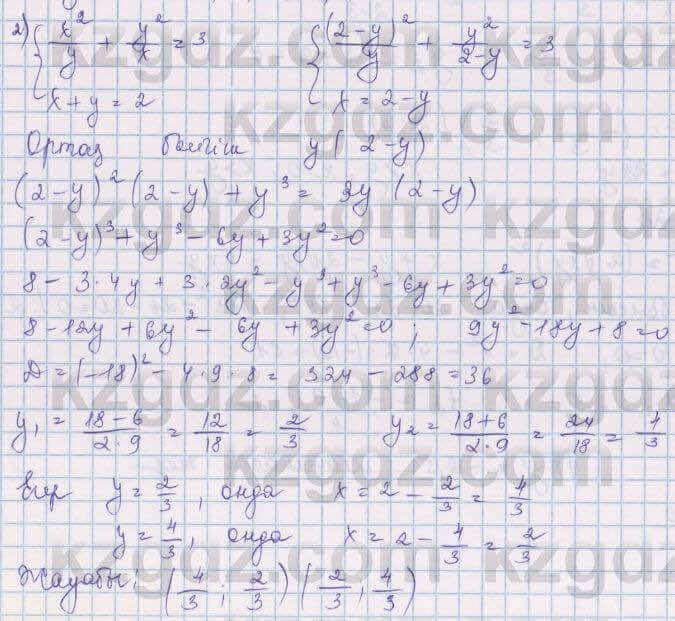 2) { x²/y + y²/x = 3    { (2-y)²/y + y²/(2-y) = 3
x + y = 2    x = 2 - y
Ортақ бөлгіш y(2-y)
(2-y)²(2-y) + y³ = 3y(2-y)
(2-y)³ + y³ - 6y + 3y² = 0
8 - 3·4y + 3·2y² - y³ + y³ - 6y + 3y² = 0
8 - 12y + 6y² - 6y + 3y² = 0 ; 9y² - 18y + 8 = 0
D = (-18)² - 4·9·8 = 324 - 288 = 36
y₁ = (18-6)/(2·9) = 12/18 = 2/3    y₂ = (18+6)/(2·9) = 24/18 = 4/3
y = 2/3, онда x = 2 - 2/3 = 4/3
y = 4/3, онда x = 2 - 4/3 = 2/3
Жауабы: (4/3 ; 2/3) (2/3 ; 4/3)
kzgdz.com